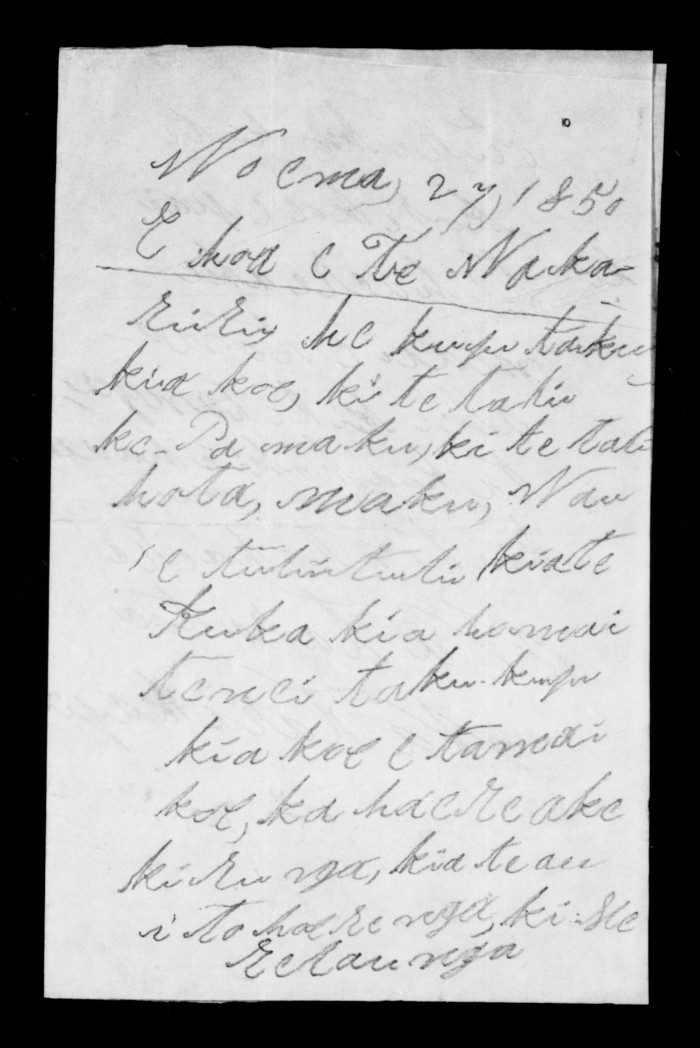 Noema, 27, 1850
E hoa e Te Maka-
ririri, he kupu taku
kia koe, ki te tahi
ke-Pa maku, ki te tahi
hota, maku, Nau
e tuhituhi kiate
Kuka kia homai
tenei taku-kupu
kia koe e tamai
koe, ka haere ake
ki runga, kia te au
i to haerenga, ki
retaunga